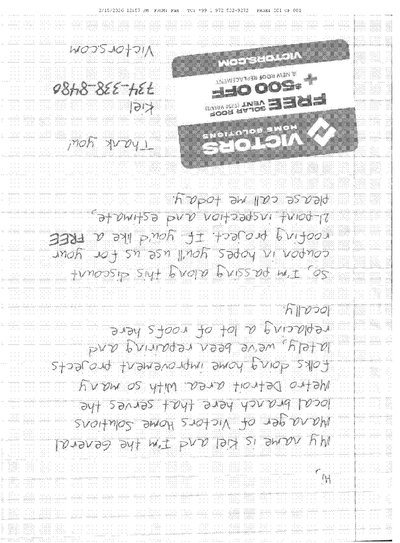 PAGE: 001 OF 001
Hi,
My name is Kiel and I'm the General
Manager of Victors Home Solutions
local branch here that serves the
Metro Detroit area. With so many
folks doing home improvement projects
lately, we've been repairing and
replacing a lot of roofs here
locally.
So, I'm passing along this discount
coupon in hopes you'll use us for your
roofing project. If you'd like a FREE
21-point inspection and estimate,
please call me today.
Thank you!
Kiel
734-338-8480
Victors.com
VICTORS
HOME SOLUTIONS
FREE SOLAR ROOF
VENT
+$500 OFF
A NEW ROOF REPLACEMENT
VICTORS.COM